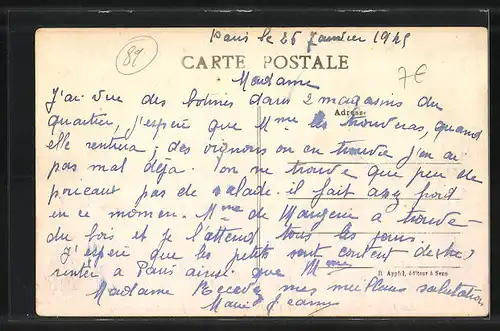 89
Paris le 25 Janvier 1945
CARTE POSTALE
7€
Madame
J'ai vue des botines dans 2 magasins du
Adresse
quartier, j'espère que Mme les trouveras, quand
elle rentrera ; des vignons on en trouve j'en ai
pas mal déja. on ne trouve que peu de
poireaux pas de salade. il fait assez froid
en ce momen. Mme de a trouvé
du bois et je l'attend tous les jours.
J'espère que les petits sont content destre
rentré a Paris ainsi que Mme
D. Apphl, éditeur à Sens
Madame Recevez mes meilleurs salutation
Marie Jeanne